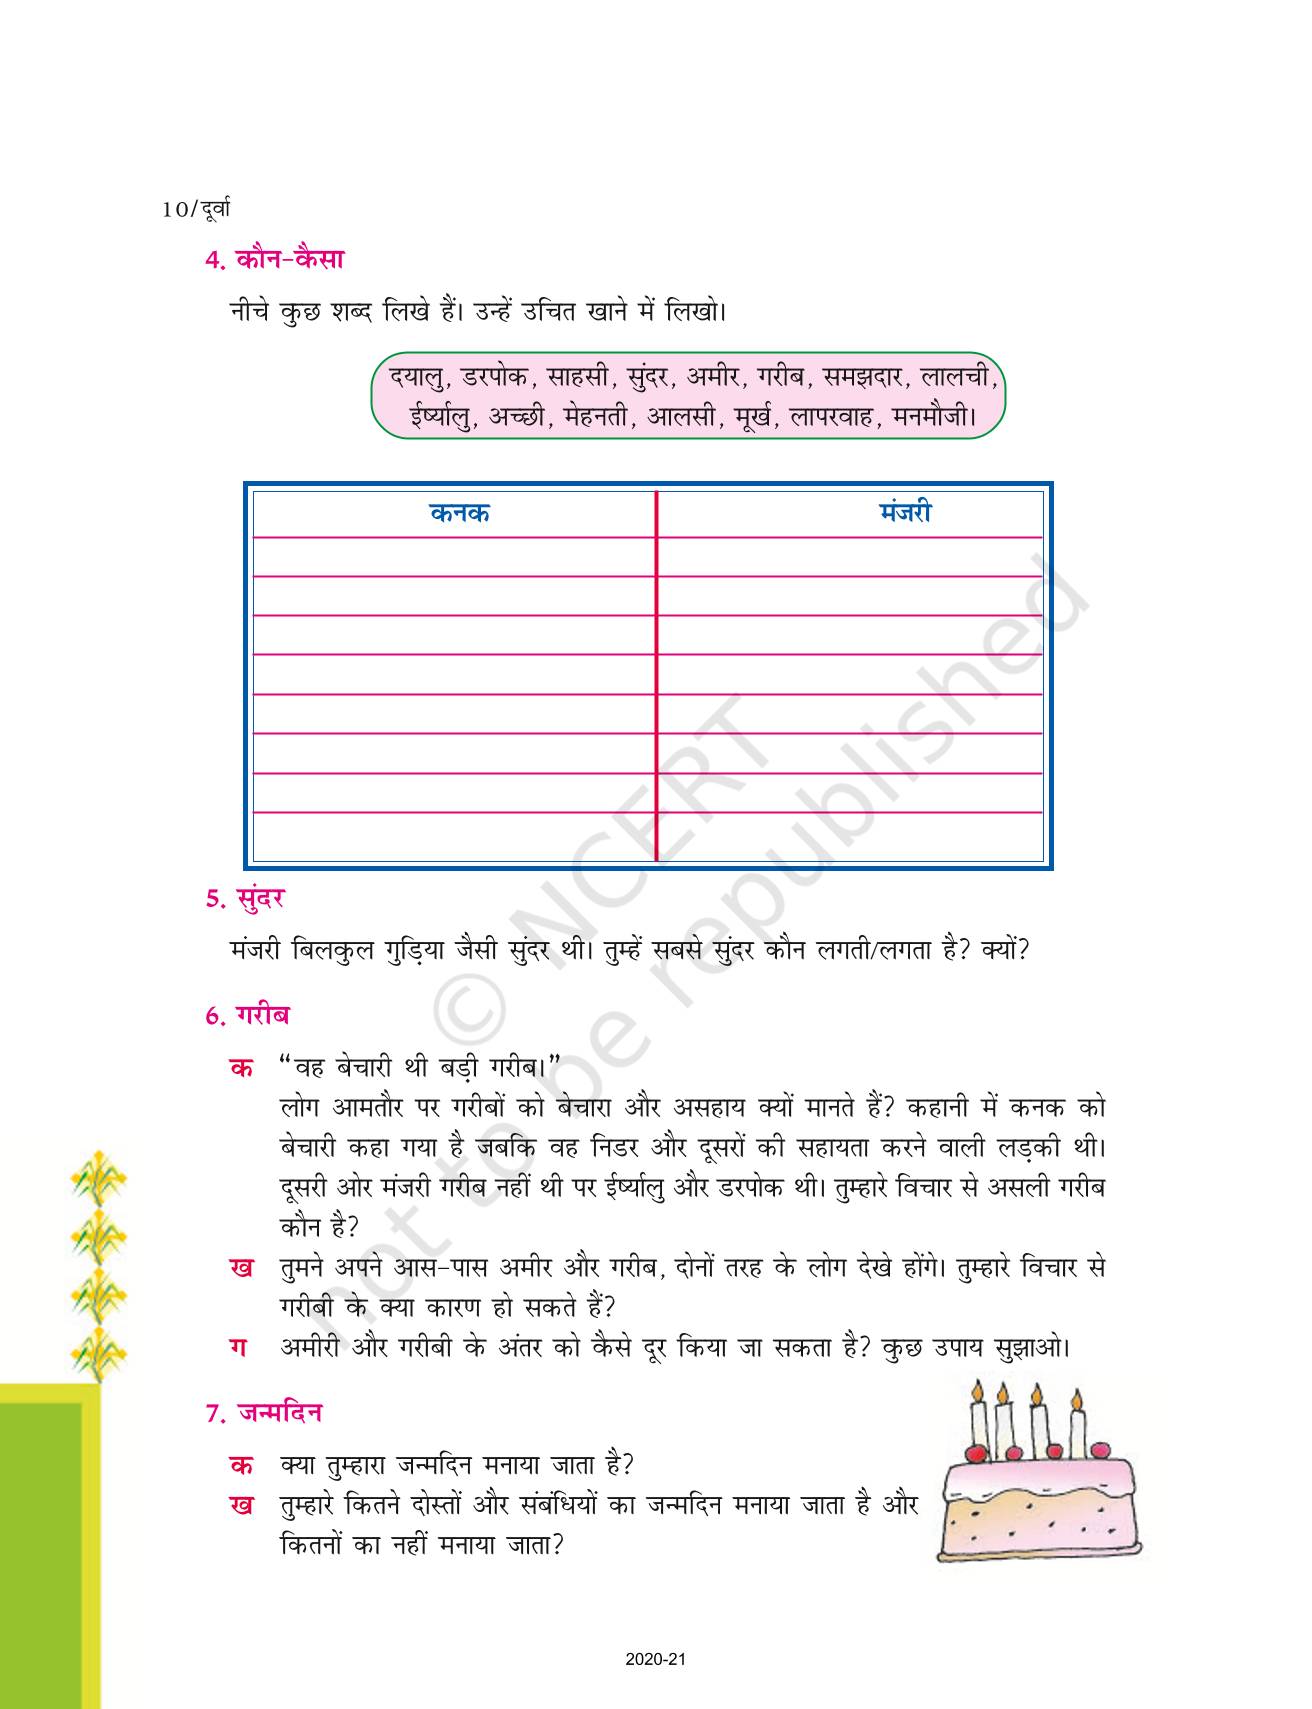 10/दूर्वा
4. कौन-कैसा
नीचे कुछ शब्द लिखे हैं। उन्हें उचित खाने में लिखो।
दयालु, डरपोक, साहसी, सुंदर, अमीर, गरीब, समझदार, लालची,
ईर्ष्यालु, अच्छी, मेहनती, आलसी, मूर्ख, लापरवाह, मनमौजी।
कनक मंजरी
5. सुंदर
मंजरी बिलकुल गुड़िया जैसी सुंदर थी। तुम्हें सबसे सुंदर कौन लगती/लगता है? क्यों?
6. गरीब
क “वह बेचारी थी बड़ी गरीब।”
लोग आमतौर पर गरीबों को बेचारा और असहाय क्यों मानते हैं? कहानी में कनक को
बेचारी कहा गया है जबकि वह निडर और दूसरों की सहायता करने वाली लड़की थी।
दूसरी ओर मंजरी गरीब नहीं थी पर ईर्ष्यालु और डरपोक थी। तुम्हारे विचार से असली गरीब
कौन है?
ख तुमने अपने आस-पास अमीर और गरीब, दोनों तरह के लोग देखे होंगे। तुम्हारे विचार से
गरीबी के क्या कारण हो सकते हैं?
ग अमीरी और गरीबी के अंतर को कैसे दूर किया जा सकता है? कुछ उपाय सुझाओ।
7. जन्मदिन
क क्या तुम्हारा जन्मदिन मनाया जाता है?
ख तुम्हारे कितने दोस्तों और संबंधियों का जन्मदिन मनाया जाता है और
कितनों का नहीं मनाया जाता?
2020-21
© NCERT
not to be republished